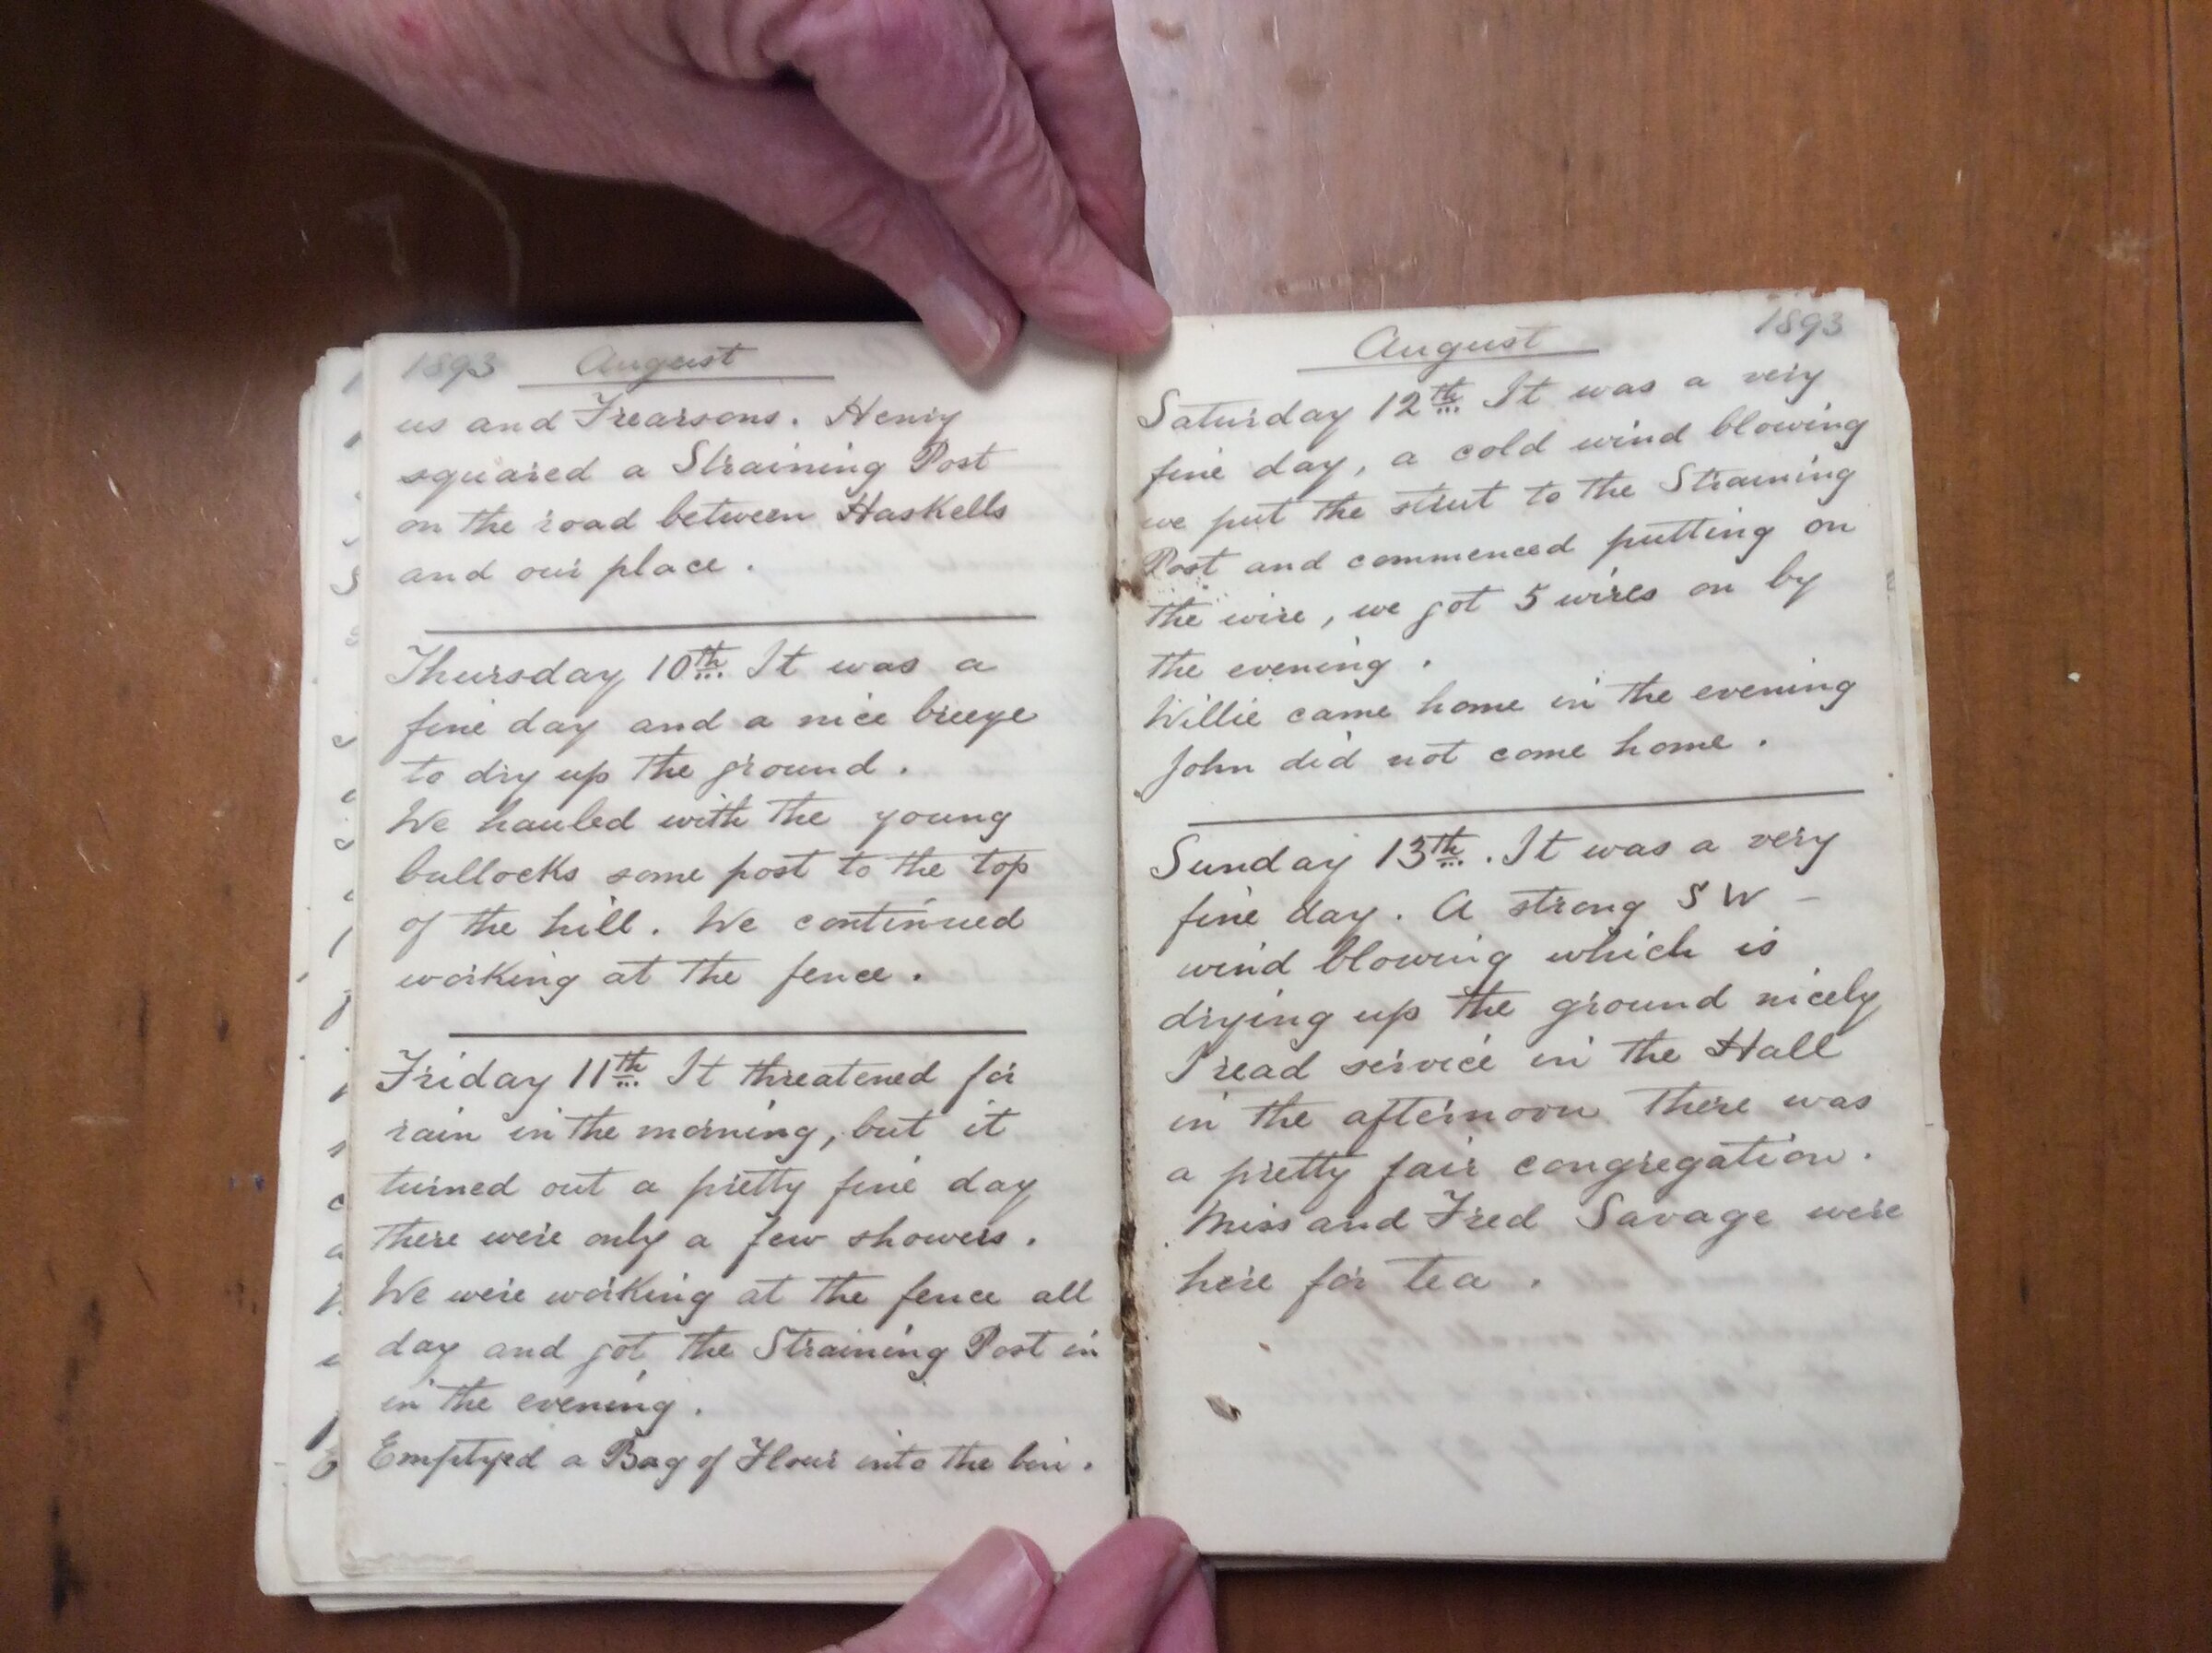 1893 August
us and Frearsons. Henry
squared a Straining Post
on the road between Haskells
and our place.
Thursday 10th. It was a
fine day and a nice breeze
to dry up the ground.
We hauled with the young
bullocks some post to the top
of the hill. We continued
working at the fence.
Friday 11th. It threatened for
rain in the morning, but it
turned out a pretty fine day
there were only a few showers.
We were working at the fence all
day and got the Straining Post in
in the evening.
Emptyed a Bag of Flour into the bin.
August 1893
Saturday 12th. It was a very
fine day, a cold wind blowing
we put the strut to the Straining
Post and commenced putting on
the wire, we got 5 wires on by
the evening.
Willie came home in the evening
John did not come home.
Sunday 13th. It was a very
fine day. A strong SW -
wind blowing which is
drying up the ground nicely
I read service in the Hall
in the afternoon there was
a pretty fair congregation.
Miss and Fred Savage were
here for tea.